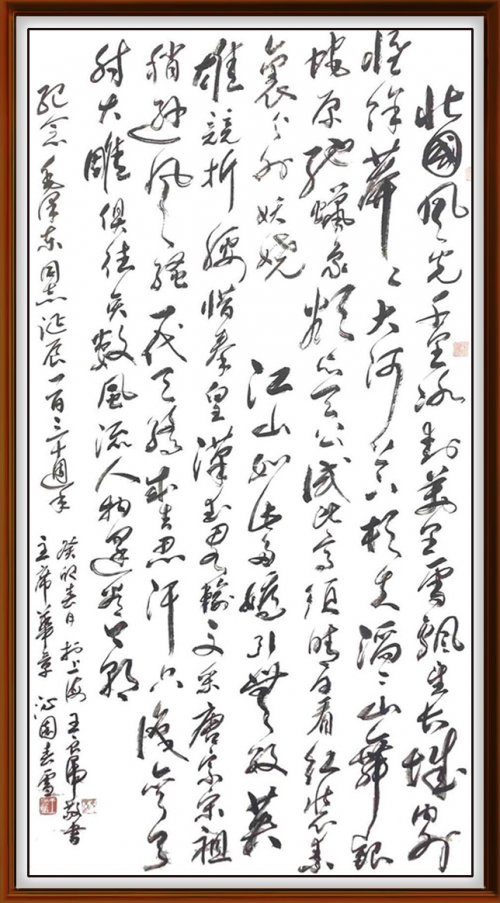 北國風光千里冰封萬里雪飄望長城內外
惟餘莽々大河上下頓失滔々山舞銀
蛇原馳蠟象欲與天公試比高須晴日看紅裝素
裹分外妖嬈 江山如此多嬌引無數英
雄競折腰惜秦皇漢武略輸文采唐宗宋祖
稍遜風騷一代天驕成吉思汗只識彎弓
射大雕俱往矣數風流人物還看今朝
紀念毛澤東同志誕辰一百三十週年
主席華章沁園春雪
癸卯春日於上海王虎敬書